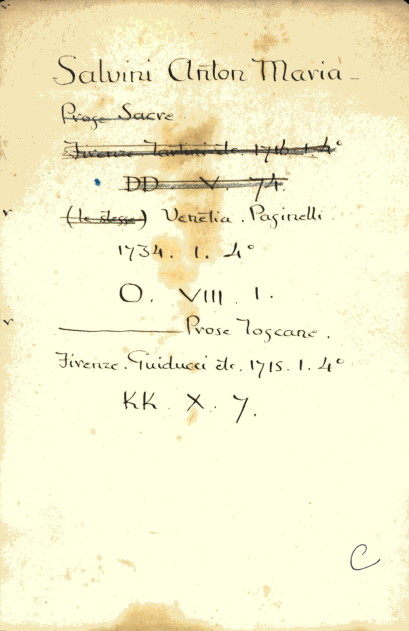 Salvini Anton Maria -
Prose Sacre
Firenze Tartini etc. 1716. 1. 4°
DD V 74.
(le stesse) Venetia. Paginelli.
1734. 1. 4°
O. VIII. 1.
Prose Toscane.
Firenze. Guiducci etc. 1715. 1. 4°
KK. X. 7.
C